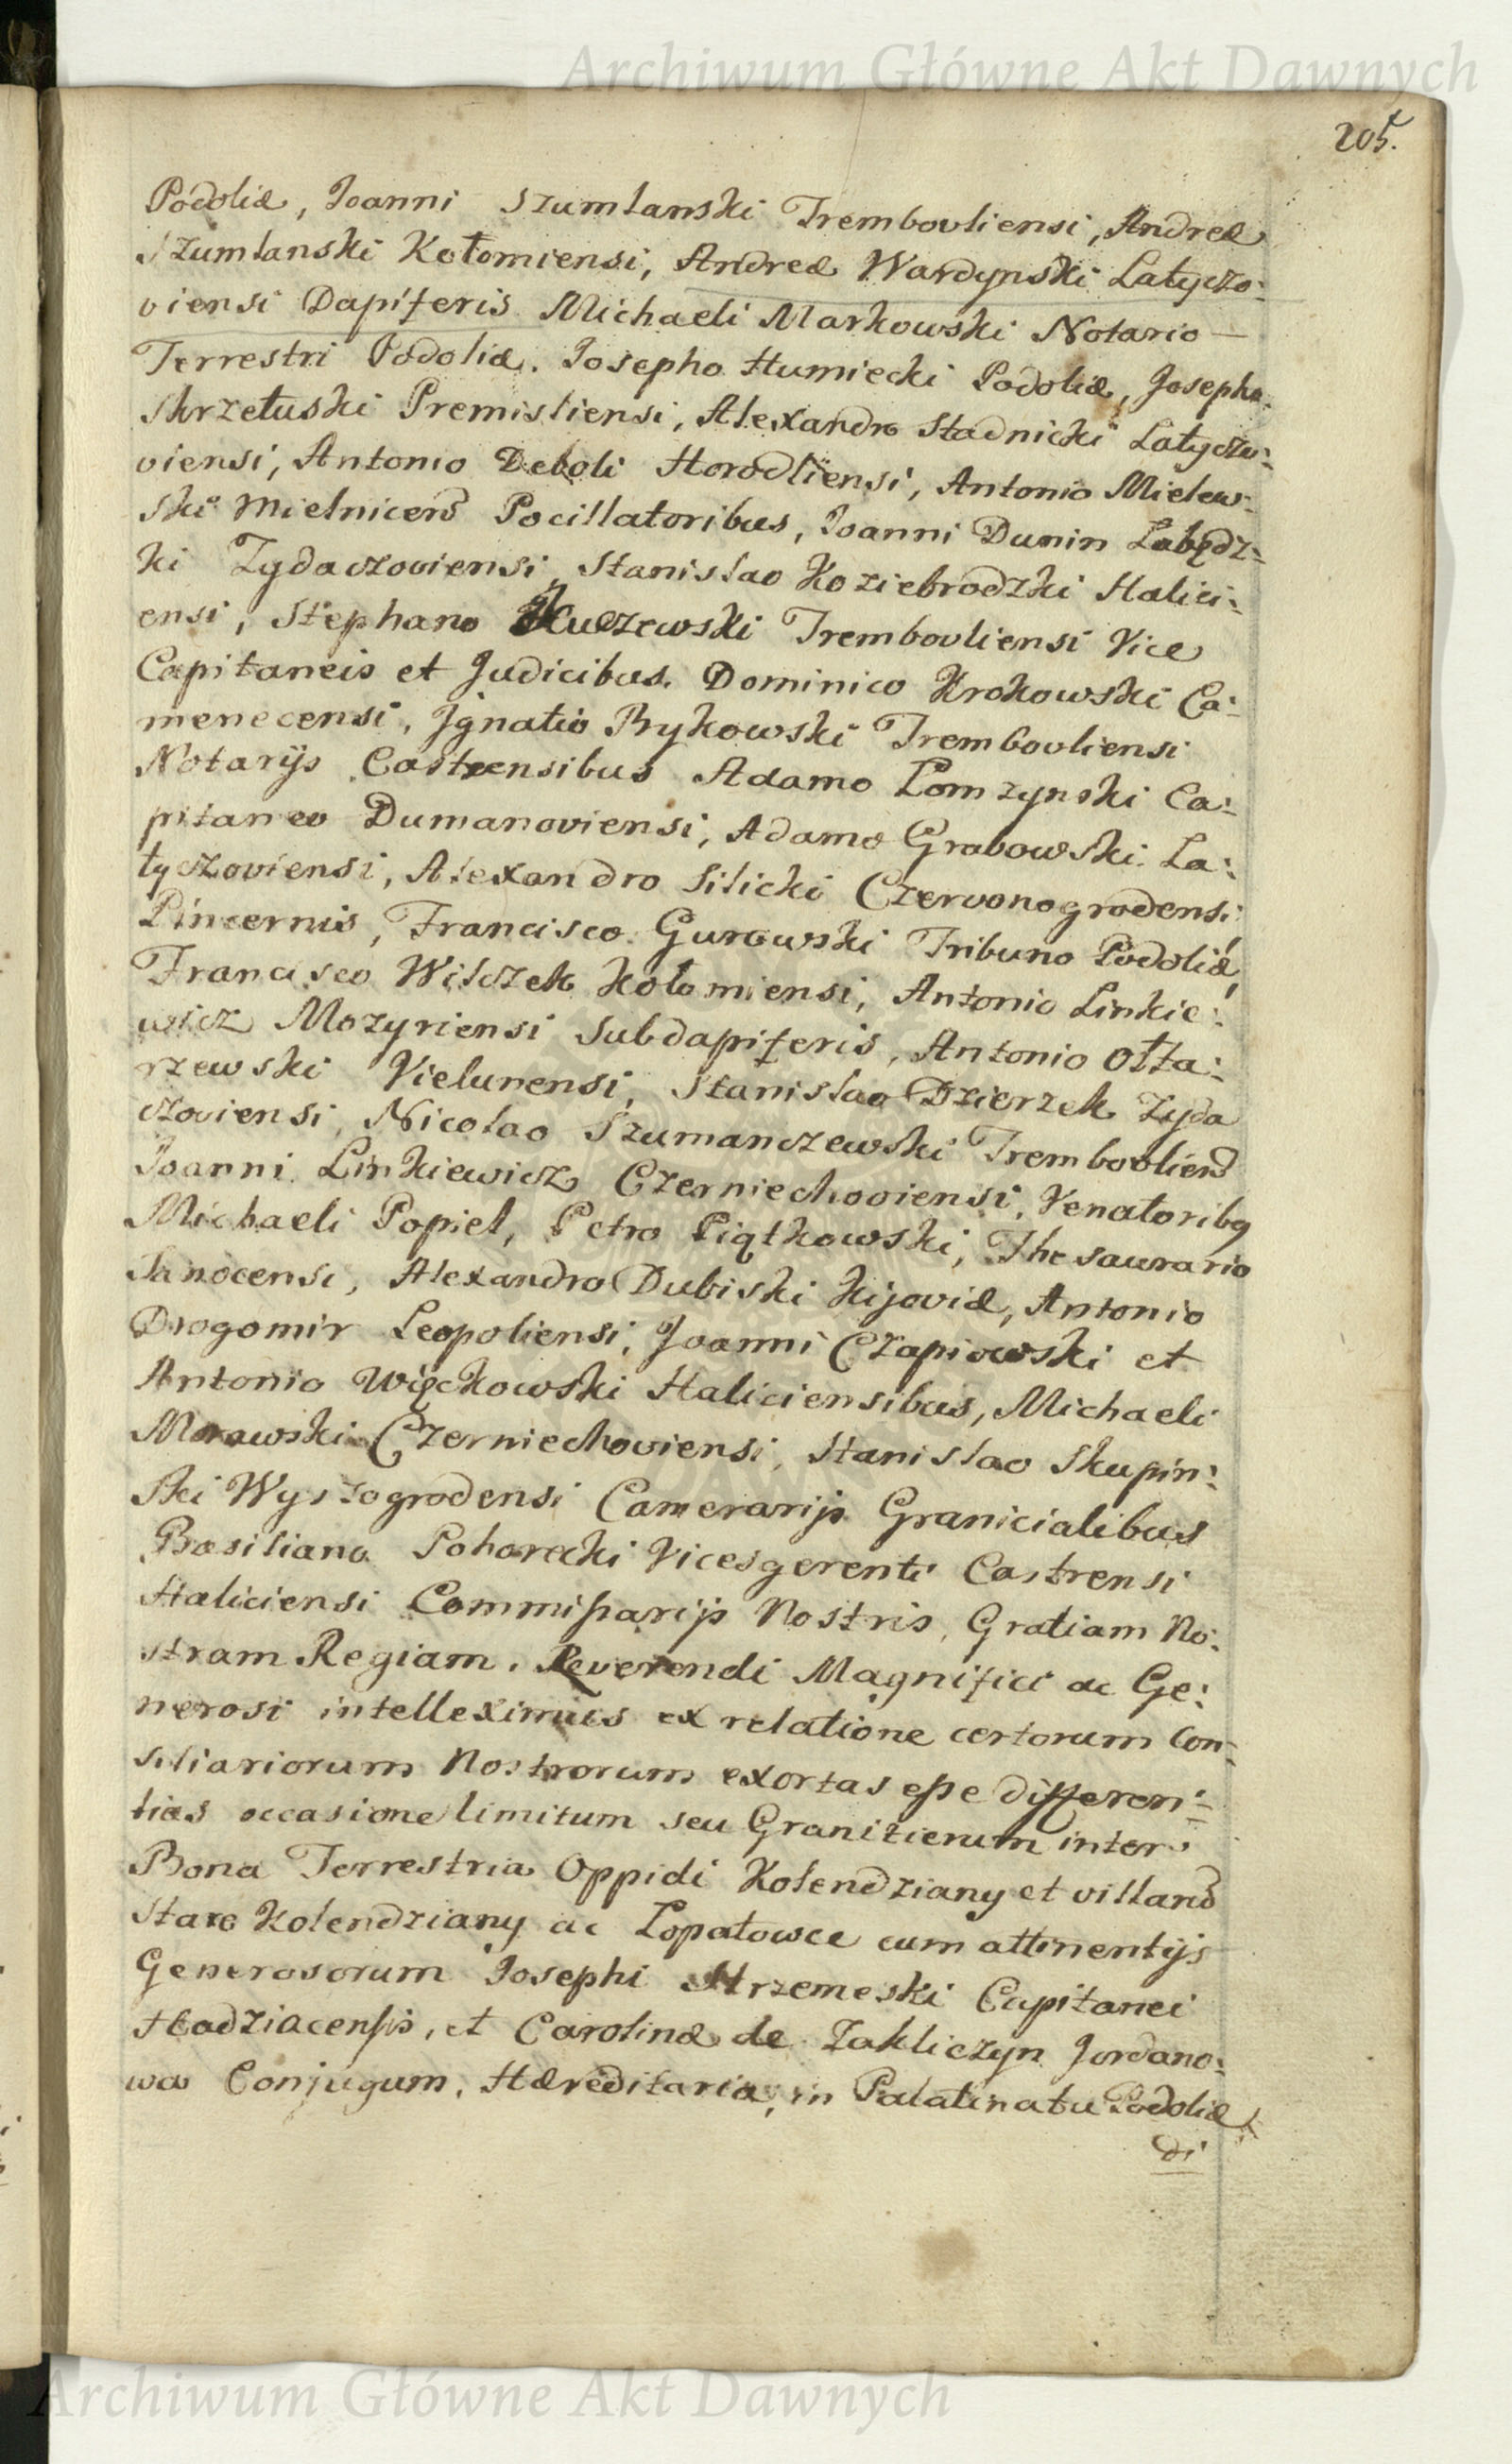 Archiwum Główne Akt Dawnych
205.
Podoliæ, Joanni Szumlanski Trembovliensi, Andreæ
Szumlanski Kołomiensi, Andreæ Wardynski Latyczo:
viensi Dapiferis Michaeli Markowski Notario —
Terrestri Podoliæ. Josepho Humiecki Podoliæ, Josepho
Skrzetuski Premisliensi, Alexandro Stadnicki Latyczo:
viensi, Antonio Deboli Horodliensi, Antonio Mielew:
ski Mielnicens Pocillatoribus, Joanni Dunin Łabędz:
ki Zydaczoviensi, Stanislao Koziebrodzki Halici:
ensi, Stephano Kuczewski Trembovliensi Vice
Capitaneis et Judicibus. Dominico Krokowski Ca:
menecensi, Jgnatio Rykowski Trembovliensi
Notarijs Castrensibus Adamo Łomzynski Ca:
pitaneo Dumanoviensi, Adamo Grabowski La:
tyczoviensi, Alexandro Silicki Czervonogrodensi
Pincernis, Francisco Gurowski Tribuno Podoliæ,
Francisco Wilczek Kołomiensi, Antonio Linkie:
wicz Mozyriensi Subdapiferis, Antonio Otta:
rzewski Vielunensi, Stanislao Dzierzek Zyda
czoviensi, Nicolao Szumanczewski Trembovliens
Joanni Linkiewicz Czerniechoviensi, Venatoribq
Michaeli Popiel, Petro Piątkowski, Thesaurario
Sanocensi, Alexandro Dubiski Kijoviæ, Antonio
Drogomir Leopoliensi, Joanni Czapiowski et
Antonio Więckowski Haliciensibus, Michaeli
Morawski Czerniechoviensi, Stanislao Skupin:
ski Wyszogrodensi Camerarijs Granicialibus
Basiliano Pohorecki Vicesgerenti Castrensi
Haliciensi Commissarijs Nostris, Gratiam No:
stram Regiam. Reverendi Magnifici ac Ge:
nerosi intelleximus ex relatione certorum Con:
siliariorum Nostrorum exortas esse differen:
tias occasione limitum seu Granitierum inter
Bona Terrestria Oppidi Kolendziany et villam
Stare Kolendziany ac Łopatowce cum attinentijs
Generosorum Josephi Strzemeski Capitanei
Hadziacensis, et Carolinæ de Zakliczyn Jordano:
wa Conjugum, Hæreditaria, in Palatinatu Podoliæ
di
Archiwum Główne Akt Dawnych